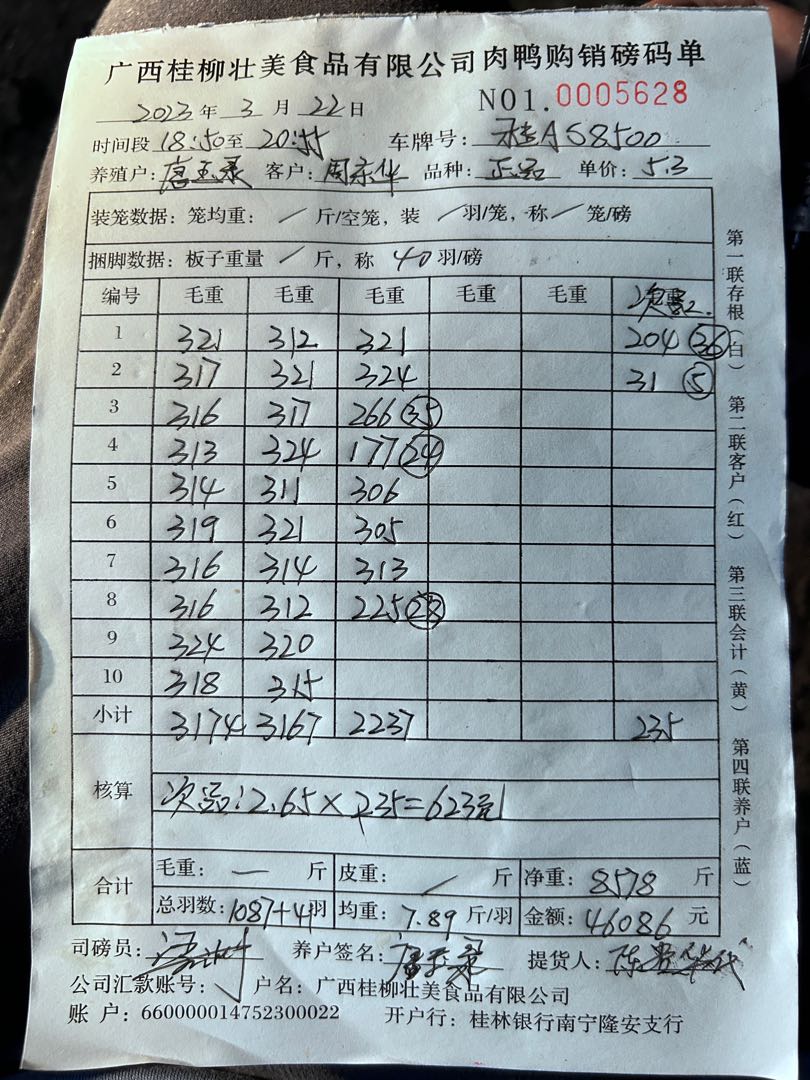 广西桂柳壮美食品有限公司肉鸭购销磅码单
2023年3月22日 NO1.0005628
时间段18:50至20:55 车牌号:桂AS8500
养殖户:唐玉录 客户:周宗华 品种:正品 单价:5.3
装笼数据:笼均重:/斤/空笼,装/羽/笼,称/笼/磅
捆脚数据:板子重量/斤,称40羽/磅
编号 毛重 毛重 毛重 毛重 毛重 次品
1 321 312 321 204 36
2 317 321 324 31 5
3 316 317 266 35
4 313 324 177 24
5 314 311 306
6 319 321 305
7 316 314 313
8 316 312 225 28
9 324 320
10 318 315
小计 3174 3167 2237 235
核算 次品:2.65×235=623元
合计 毛重:—斤 皮重:/斤 净重:8578斤
总羽数:1087+41羽 均重:7.89斤/羽 金额:46086元
司磅员: 养户签名:唐玉录 提货人:陈
公司汇款账号: 户名:广西桂柳壮美食品有限公司
账户:660000014752300022 开户行:桂林银行南宁隆安支行
第一联存根(白) 第二联客户(红) 第三联会计(黄) 第四联养户(蓝)